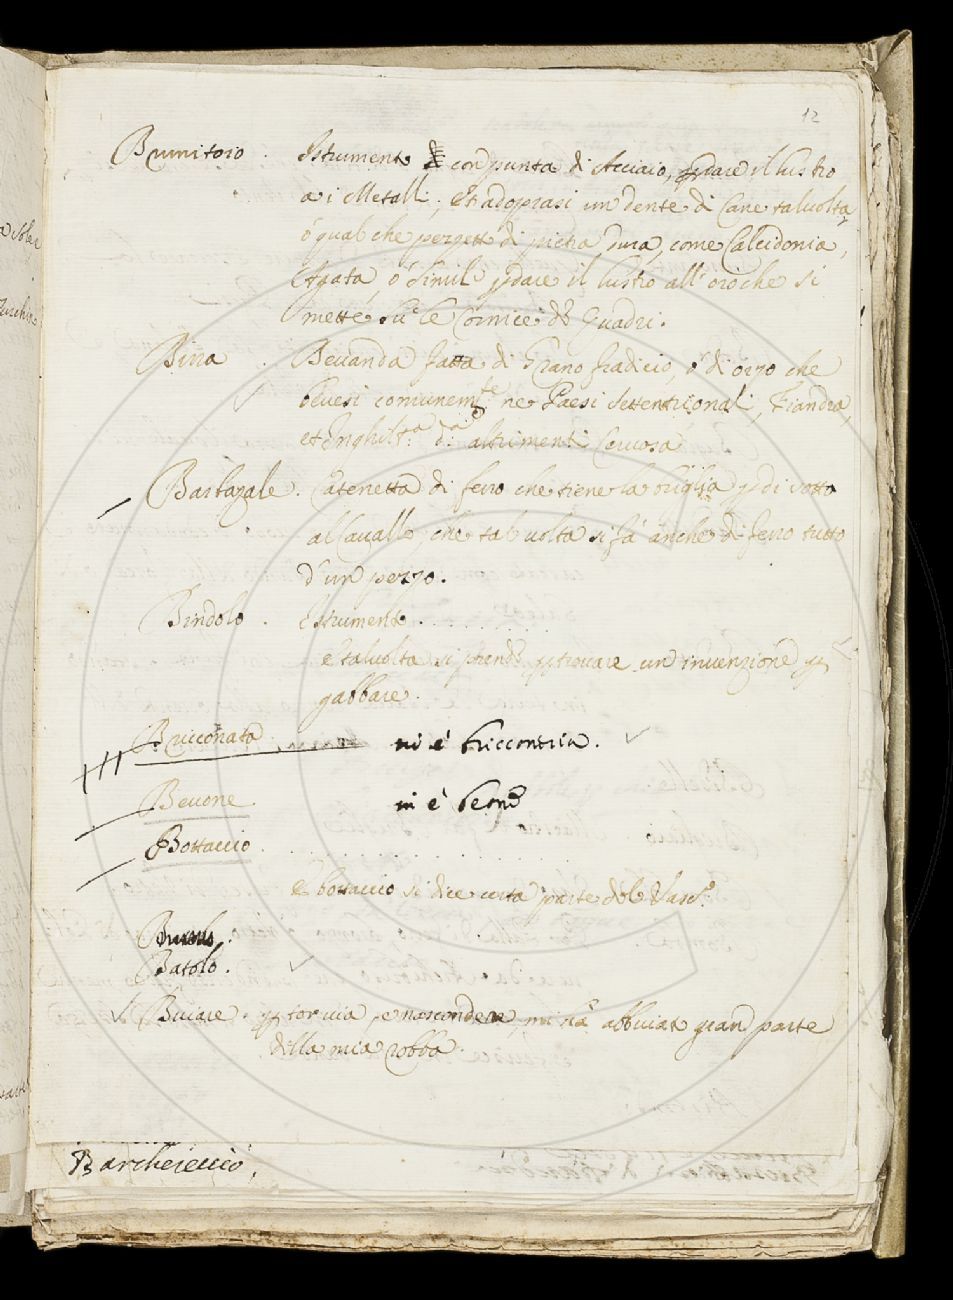 12
Brunitoio . Istrumento con punta di Acciaio, p dare il lustro
a i Metalli, et adoprasi un dente di Cane talvolta,
ó qualche pezzetto di pietra dura, come Calcidonia,
Agata ó simili p dare il lustro all' oro che si
mette sù le Cornici de Quadri.
Birra . Bevanda fatta di Grano fradicio, ó di orzo che
bevesi comunemte ne Paesi Settentrionali, Fiandra,
et Inghilt.a d.a altrimenti Cervosa
Barbazale . Catenetta di ferro che tiene la briglia p di sotto
al Cavallo, che tal volta si fá anche di ferro tutto
d'un pezzo.
Bindolo . Istrumento . . . . . . . .
e talvolta si prende p trovare un invenzione p
gabbare.
Bricconata . vi è bricconeria.
Bevone vi è
Bottaccio . . . . . . . . . . . .
E bottaccio si dice certa parte del
Batolo .
Buiare . p tor via, e nascondere, mi há abbuiato gran parte
della mia robba.
Barchereccio.